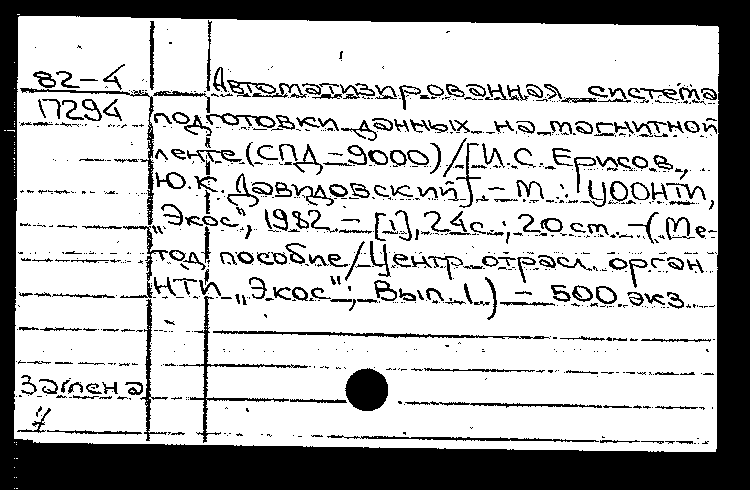 82-4 Автоматизированная система
17294 подготовки данных на магнитной
ленте (СПД-9000) / [И.С. Ерисов,
Ю.К. Давидовский]. - М : ЦООНТИ,
„Экос", 1982 - [1], 24с ; 20 cm. - (Ме-
тод пособие / Центр отрасл. орган
НТИ „Экос"; Вып 1.) - 500 экз
Замена